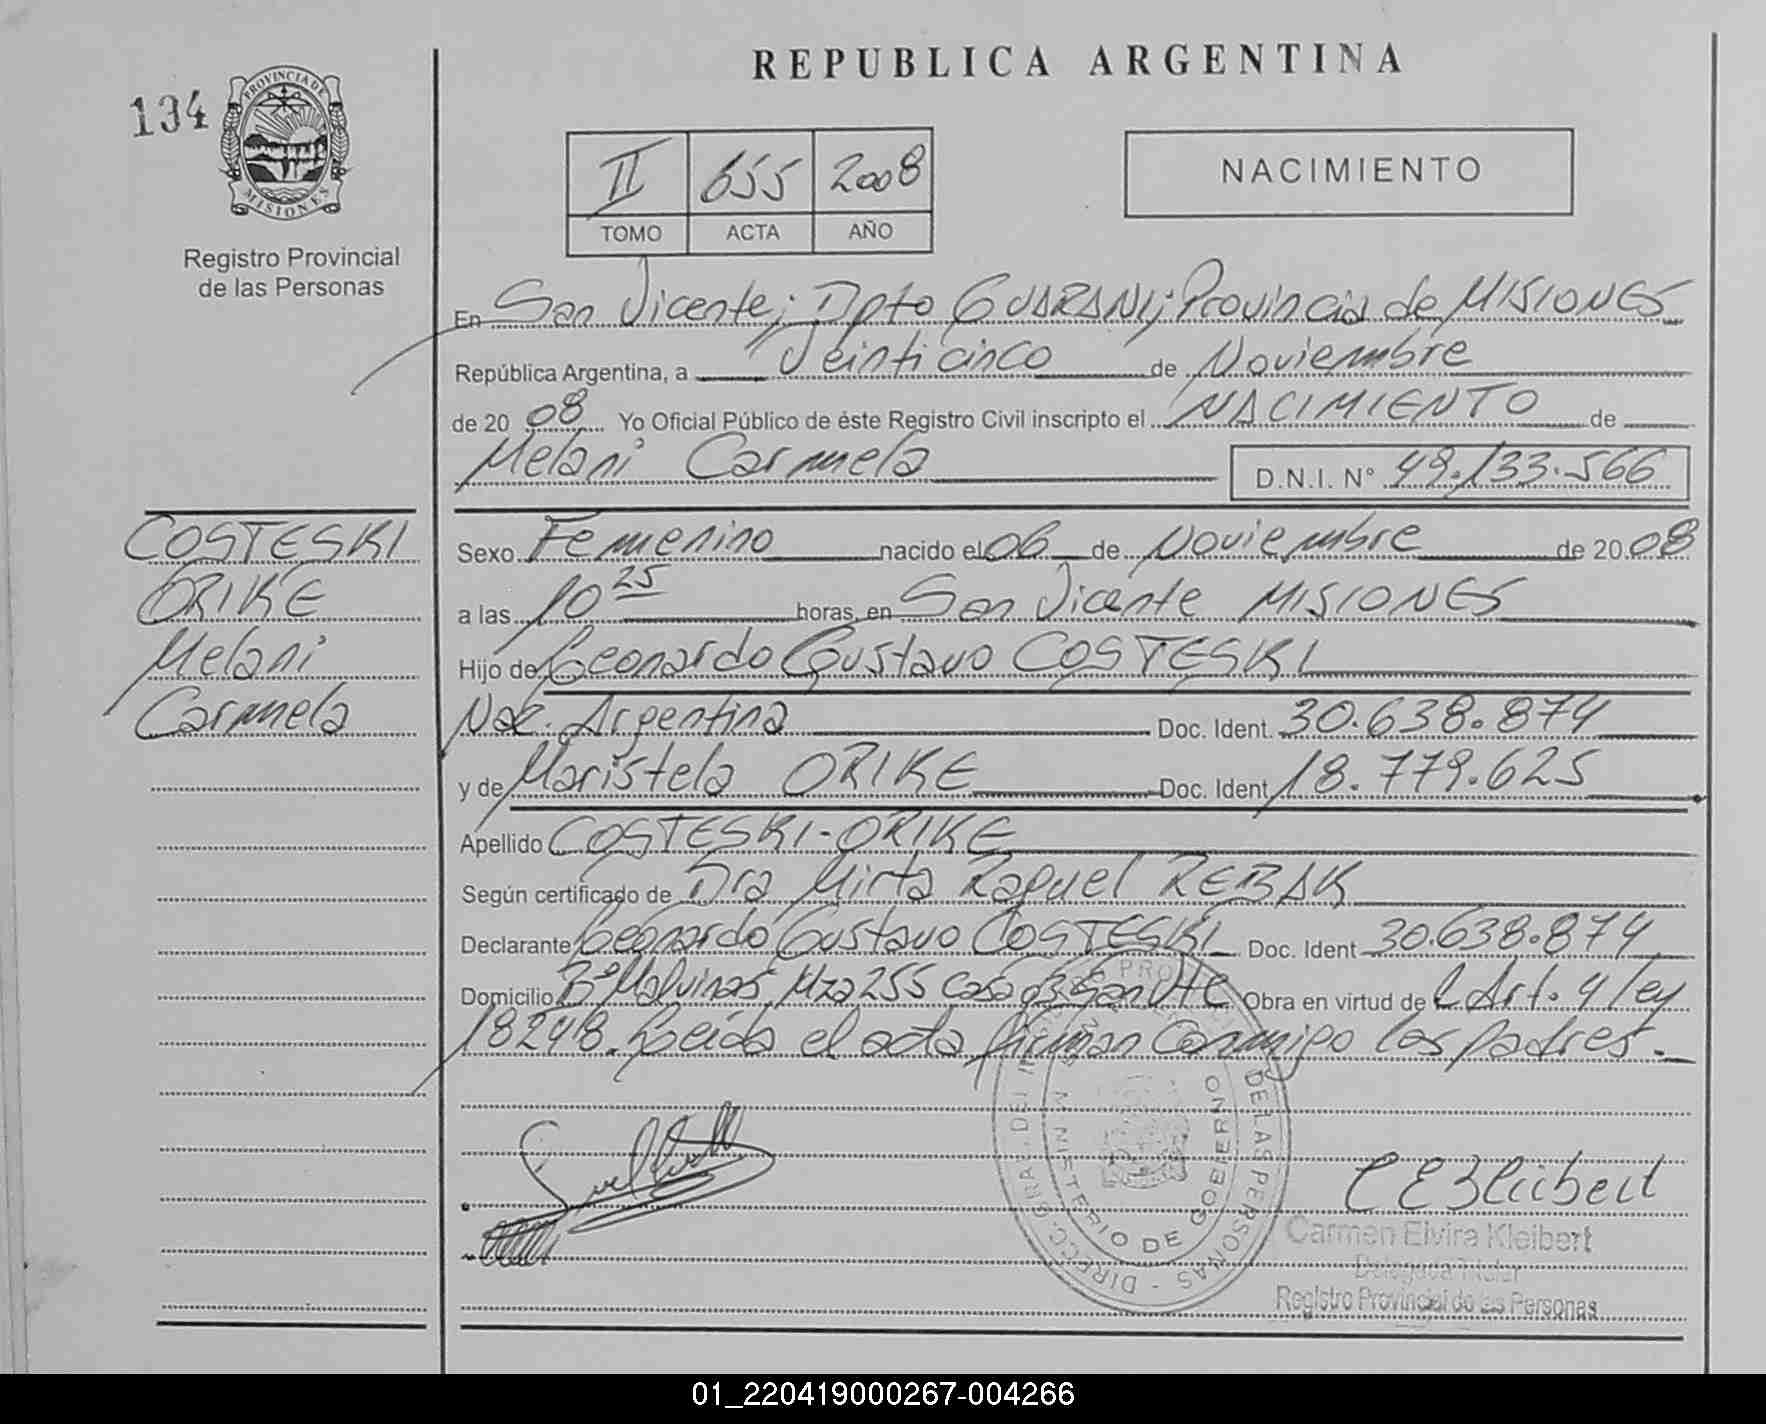 REPUBLICA ARGENTINA
134
PROVINCIA DE
MISIONES
Registro Provincial
de las Personas
II 655 2008
TOMO ACTA AÑO
NACIMIENTO
En San Vicente; Dpto GUARANI; Provincia de MISIONES
República Argentina, a Veinticinco de Noviembre
de 2008 Yo Oficial Público de éste Registro Civil inscripto el NACIMIENTO de
Melani Carmela D.N.I. N° 49.133.566
COSTESKI
ORIKE
Melani
Carmela
Sexo Femenino nacido el 06 de Noviembre de 2008
a las 10 25 horas, en San Vicente MISIONES
Hijo de Leonardo Gustavo COSTESKI
Nac. Argentina Doc. Ident. 30.638.874
y de Maristela ORIKE Doc. Ident. 18.779.625
Apellido COSTESKI-ORIKE
Según certificado de Dra Mirta Raquel REBAK
Declarante Leonardo Gustavo COSTESKI Doc. Ident. 30.638.874
Domicilio B° Malvinas Mza 255 Casa San Vte Obra en virtud de l Art. 4 ley
18248. Leída el acta firman Conmigo los padres.
DIRECC. GRAL. DEL DE LAS PERSONAS
MINISTERIO DE GOBIERNO
Carmen Elvira Kleibert
Delegada Titular
Registro Provincial de las Personas
01_220419000267-004266